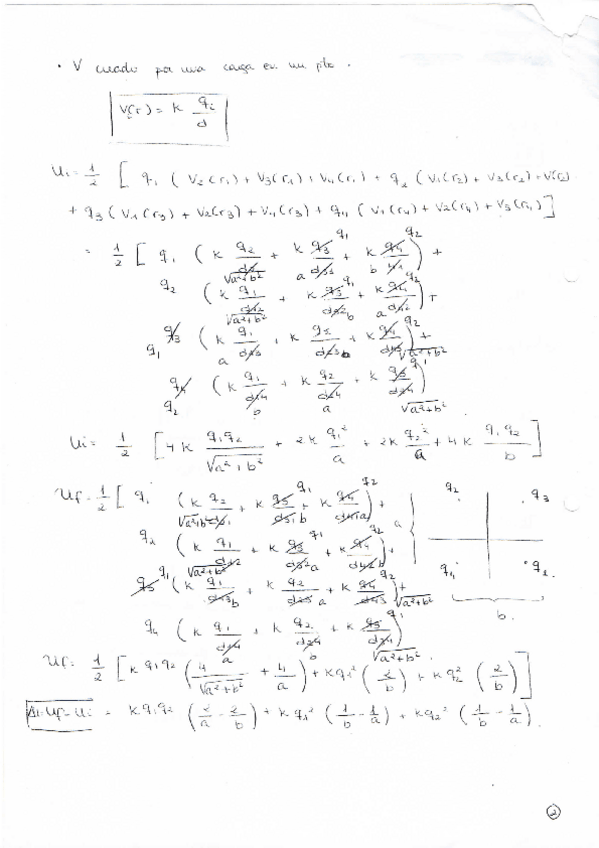 · V creado por una carga en un pto.
V(r) = K q_i / d
U_i = 1/2 [ q_1 ( V_2(r_1) + V_3(r_1) + V_4(r_1) + q_2 ( V_1(r_2) + V_3(r_2) + V_4(r_2)
+ q_3 ( V_1(r_3) + V_2(r_3) + V_4(r_3) + q_4 ( V_1(r_4) + V_2(r_4) + V_3(r_4) ]
= 1/2 [ q_1 ( K q_2/√(a²+b²) + K q_1/a + K q_2/b ) +
q_2 ( K q_1/√(a²+b²) + K q_1/b + K q_2/a ) +
q_1 ( K q_1/a + K q_2/b + K q_2/√(a²+b²) ) +
q_2 ( K q_1/b + K q_2/a + K q_1/√(a²+b²) )
U_i = 1/2 [ 4K q_1 q_2/√(a²+b²) + 2K q_1²/a + 2K q_2²/a + 4K q_1 q_2/b ]
U_f = 1/2 [ q_1 ( K q_2/√(a²+b²) + K q_1/b + K q_2/a ) +
q_2 ( K q_1/√(a²+b²) + K q_1/a + K q_2/b ) +
q_1 ( K q_1/b + K q_2/a + K q_2/√(a²+b²) ) +
q_4 ( K q_1/a + K q_2/b + K q_1/√(a²+b²) )
q_2 q_3
a
q_4 q_2
b
U_f = 1/2 [ K q_1 q_2 ( 4/√(a²+b²) + 4/a ) + K q_1² ( 2/b ) + K q_2² ( 2/b ) ]
ΔU = U_f - U_i = K q_1 q_2 ( 2/a - 2/b ) + K q_1² ( 1/b - 1/a ) + K q_2² ( 1/b - 1/a )
2